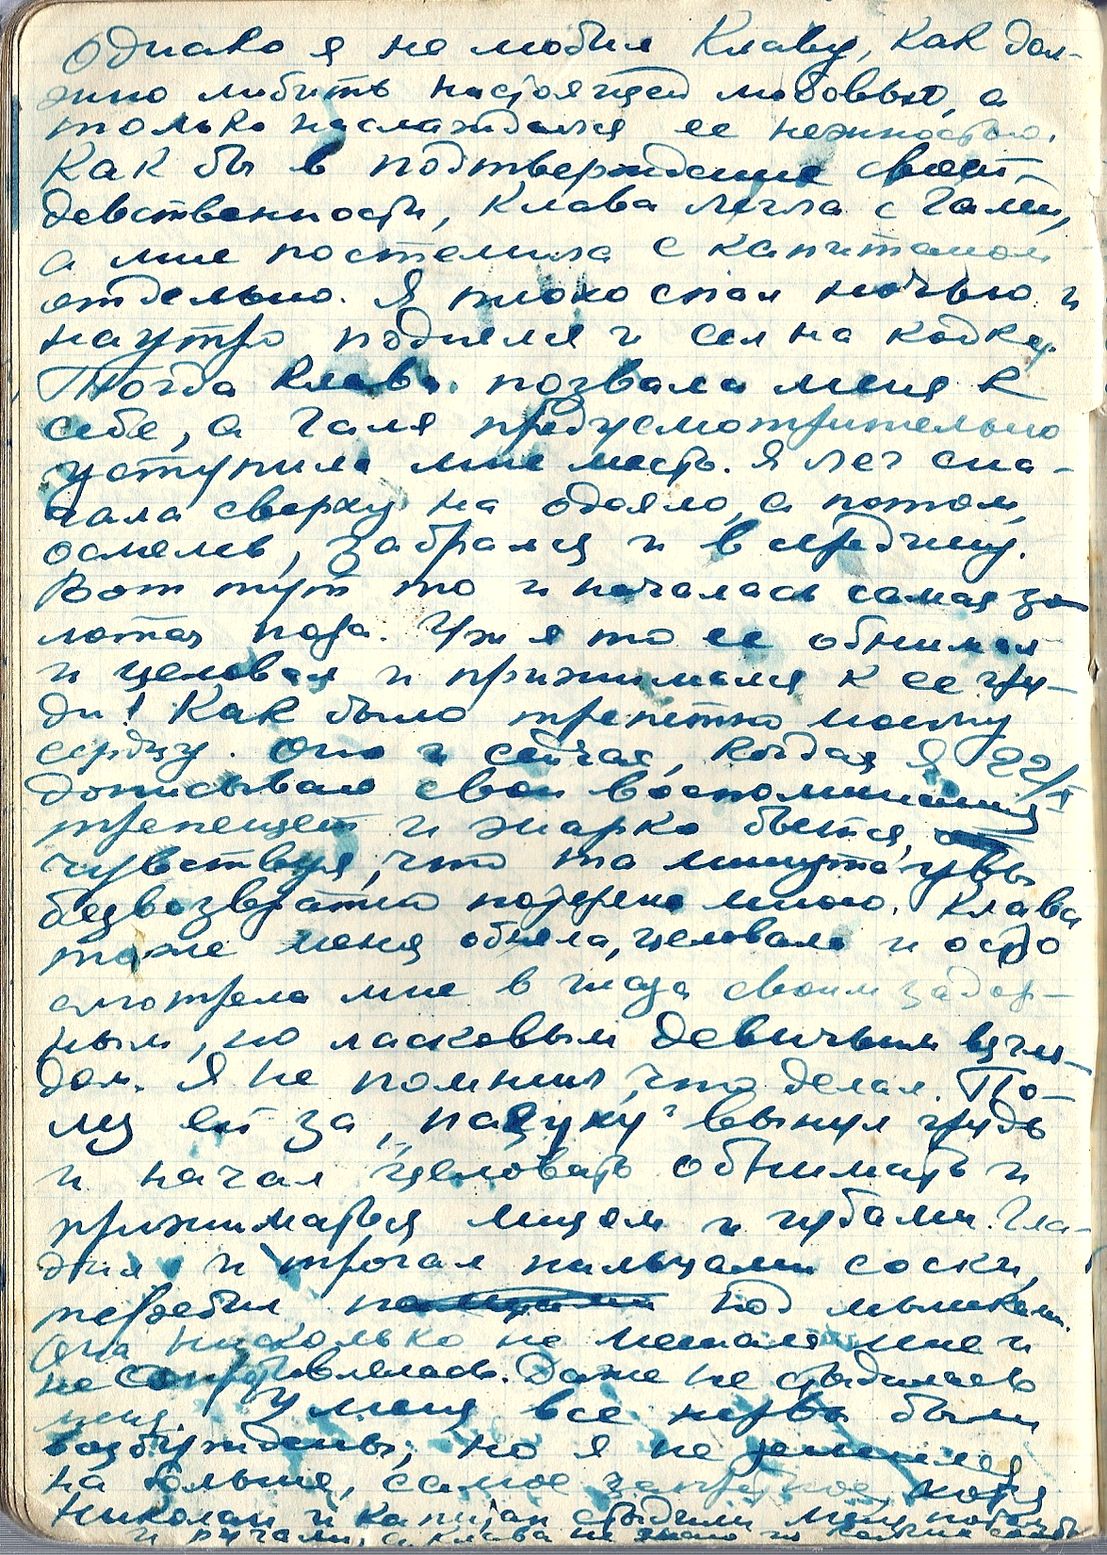 Однако я не любил Клаву, как дол-
жно любить настоящей любовью, а
только наслаждался ее нежностью.
Как бы в подтверждение своей
девственности, Клава легла с Галей,
а мне постелила с капитаном
отдельно. Я плохо спал ночью и
наутро поднялся и сел на койку.
Тогда Клава позвала меня к
себе, а Галя предусмотрительно
уступила мне место. Я лег сна-
чала сверху на одеяло, а потом,
осмелев, забрался и в середину.
Вот тут то и началась самая зо
лотая пора. Уж я то ее обнимал
и целовал и прижимался к ее гру-
ди! Как было трепетно моему
сердцу. Оно и сейчас, когда я 22/X
дописываю свои воспоминания
трепещет и жарко бьется,
чувствуя, что та минута увы
безвозвратно потеряна мною. Клава
тоже меня обняла, целовала и остро
смотрела мне в глаза своим задор-
ным, но ласковым девичьим взгля-
дом. Я не помнил, что делал. По-
лез ей за „пазуху“ вынул грудь
и начал целовать обнимать и
прижиматься лицом и губами. Гла-
дил и трогал пальцами соски,
теребил под мышками.
Она нисколько не мешала мне и
не сопротивлялась. Даже не стыдилась
меня. У меня все нервы были
возбуждены, но я не
на больше, самое запретное, хотя
Николай и капитан стыдили меня потом
и ругали, а Клава не